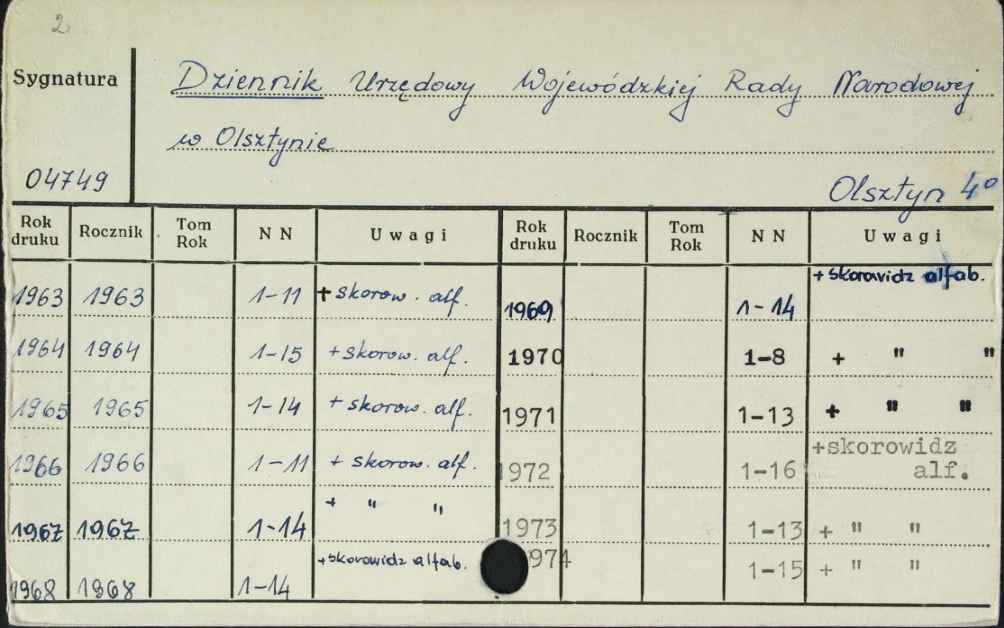 2
Sygnatura
Dziennik Urzędowy Wojewódzkiej Rady Narodowej
w Olsztynie
04749
Olsztyn 4°
Rok druku Rocznik Tom Rok NN Uwagi Rok druku Rocznik Tom Rok NN Uwagi
1963 1963 1-11 + skorow. alf. 1969 1-14 + skorowidz alfab.
1964 1964 1-15 + skorow. alf. 1970 1-8 + " "
1965 1965 1-14 + skorow. alf. 1971 1-13 + " "
1966 1966 1-11 + skorow. alf. 1972 1-16 +skorowidz alf.
1967 1967 1-14 + " " 1973 1-13 + " "
1968 1968 1-14 +skorowidz alfab. 974 1-15 + " "